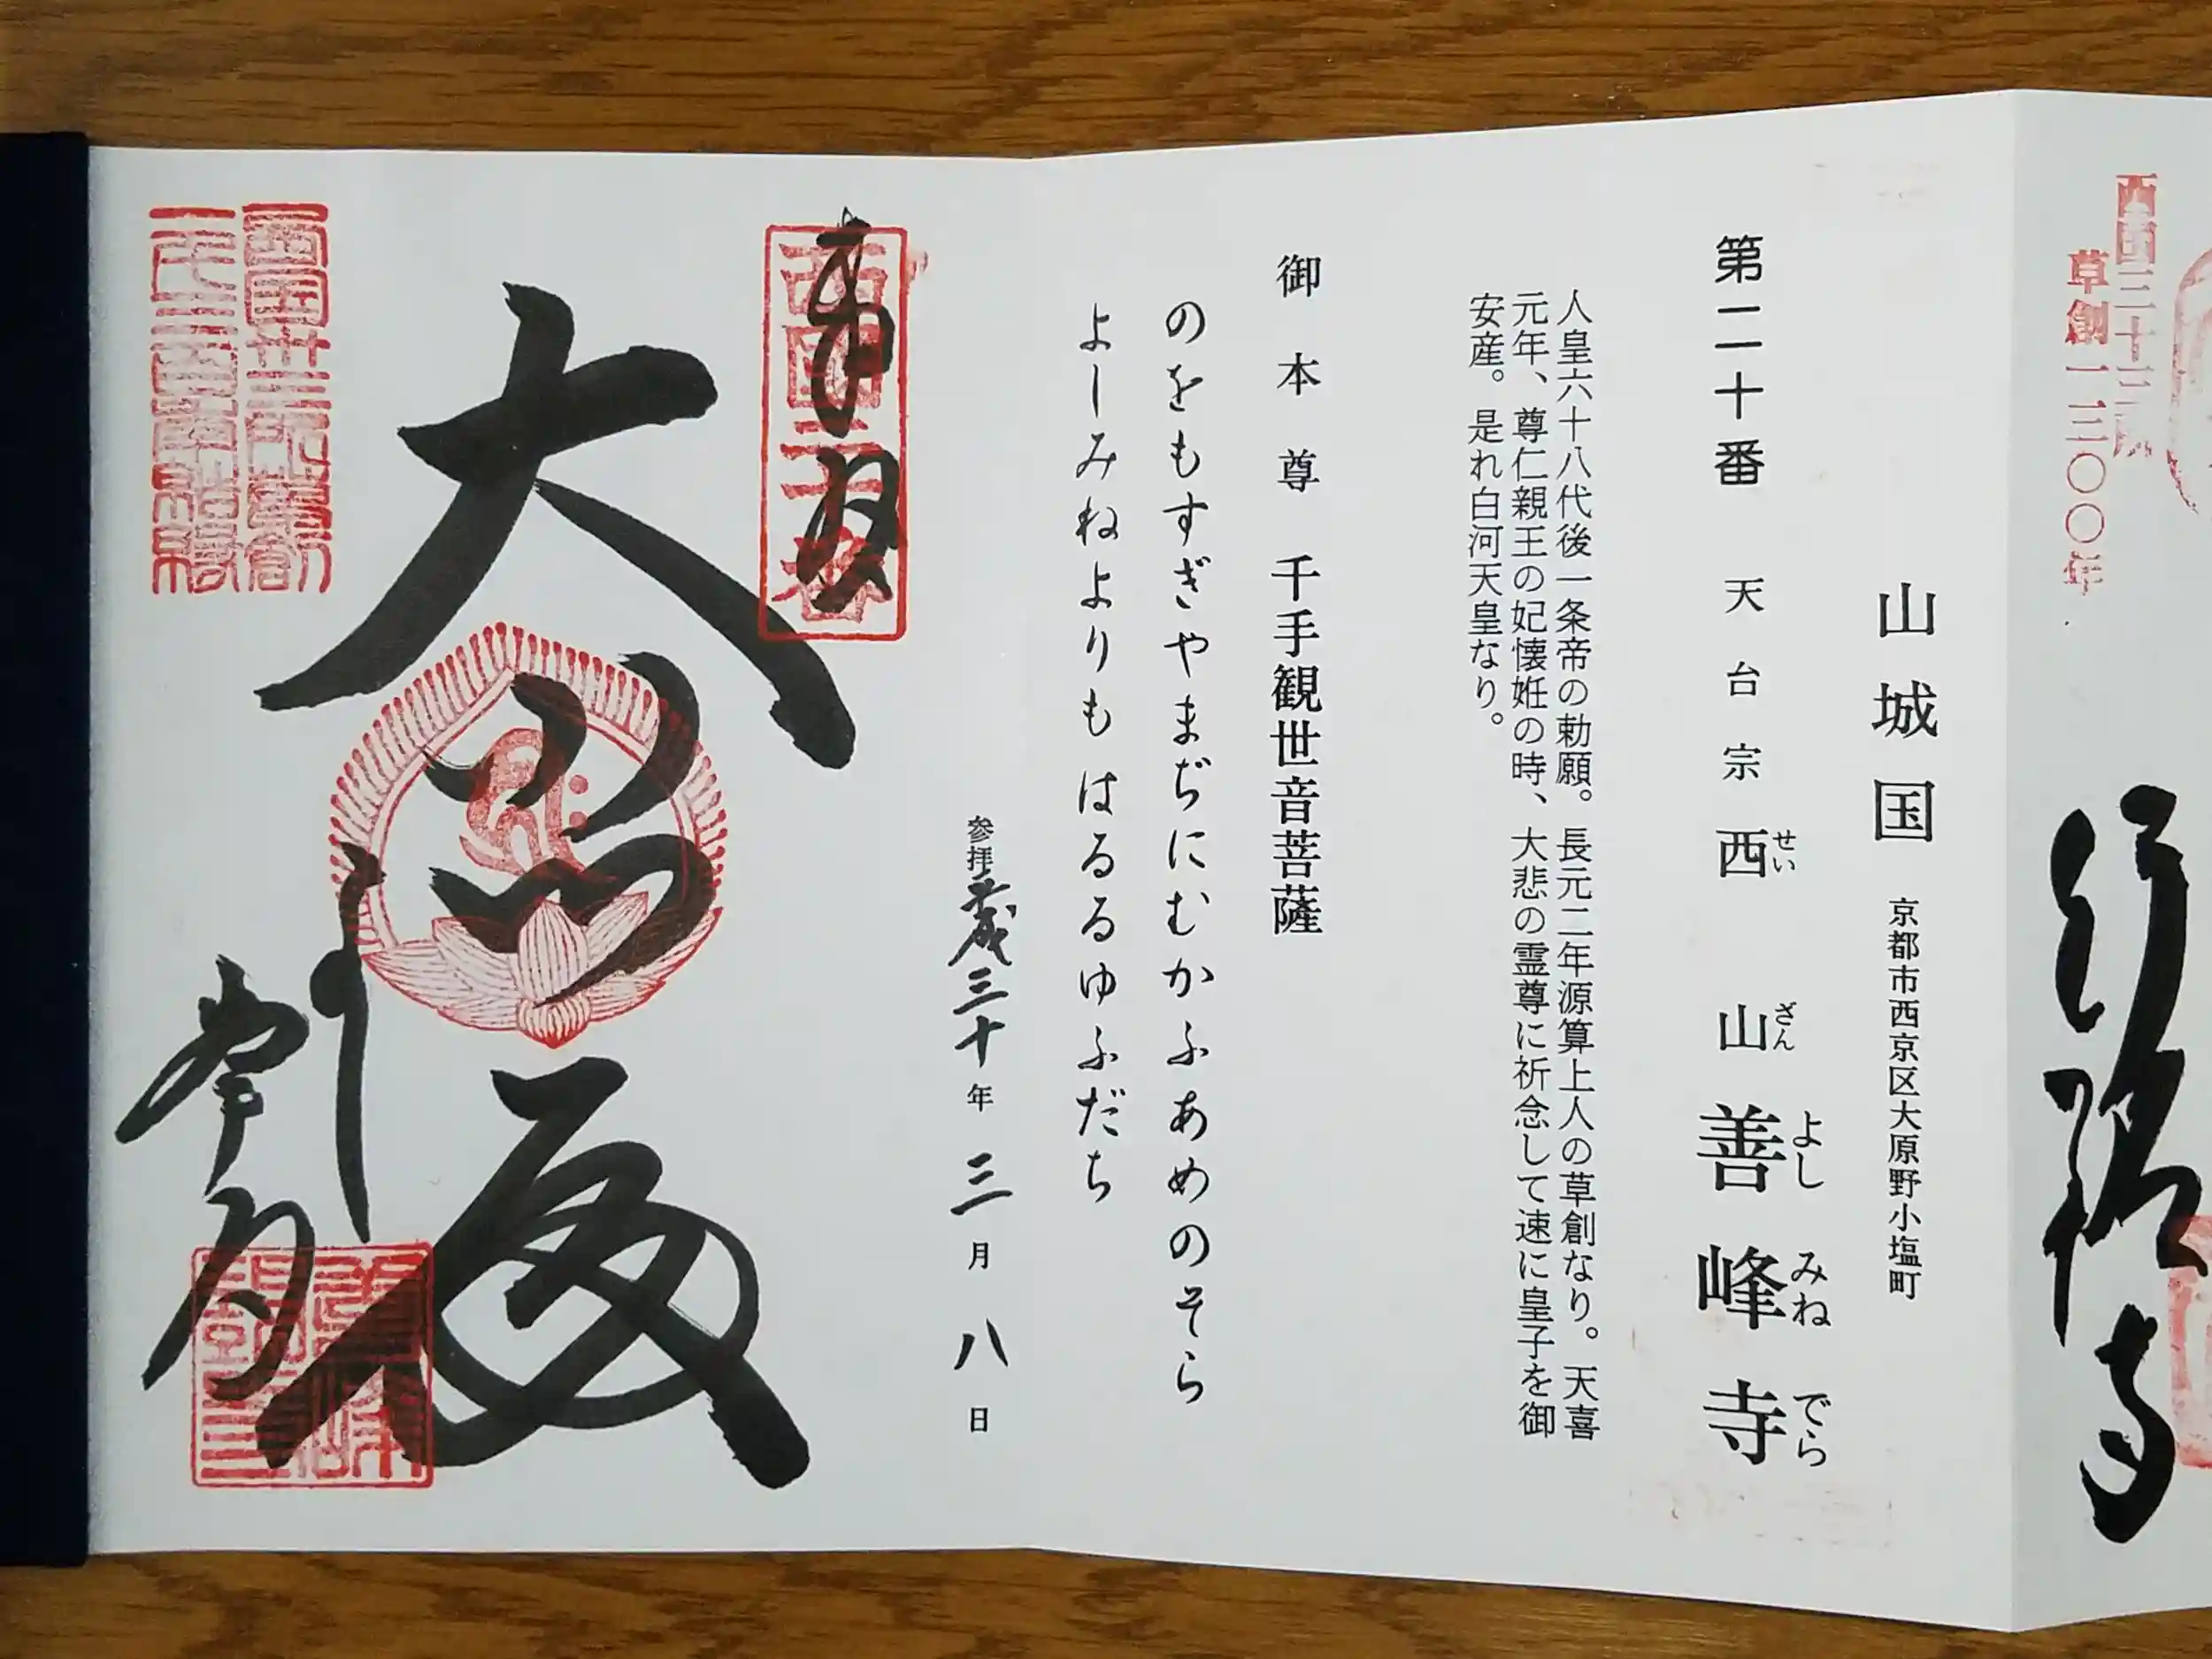 西国三十三所
草創一三〇〇年
山城国 京都市西京区大原野小塩町
第二十番 天台宗 西山善峰寺
せいざんよしみねでら
人皇六十八代後一条帝の勅願。長元二年源算上人の草創なり。天喜
元年、尊仁親王の妃懐妊の時、大悲の霊尊に祈念して速に皇子を御
安産。是れ白河天皇なり。
御本尊 千手観世音菩薩
のをもすぎやまぢにむかふあめのそら
よしみねよりもはるるゆふだち
参拝平成三十年三月八日
奉拝
西國二十番
大悲殿
善峯寺
西国卅三所草創
一千三百年結縁